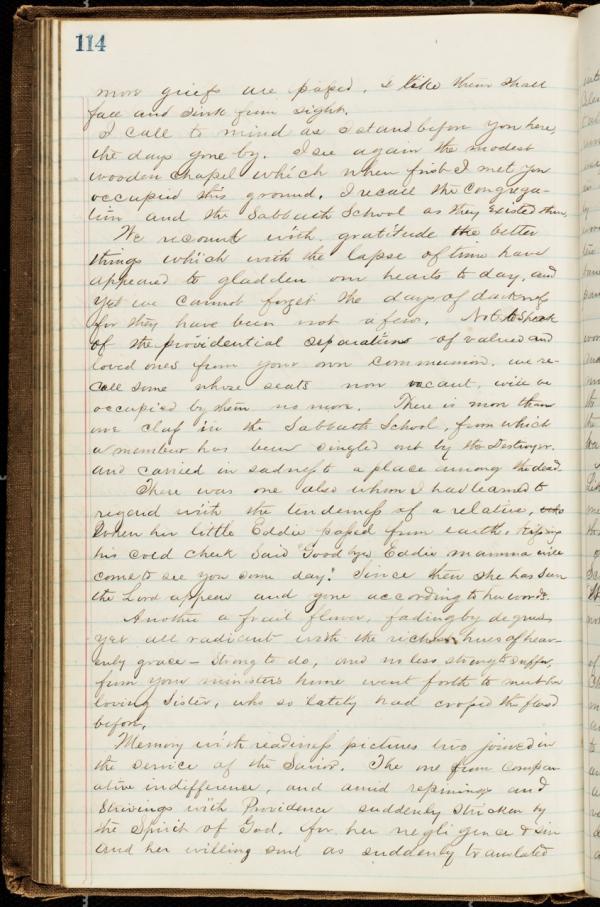 114
more griefs are passed. I like them shall
face and sink from sight.
I call to mind as I stand before you here,
the days gone by. I see again the modest
wooden chapel which when first I met you
occupied this ground. I recall the Congrega-
tion and the Sabbath School as they existed then.
We recount with gratitude the better
things which with the lapse of time have
appeared to gladden our hearts to day, and
yet we cannot forget the days of darkness
for they have been not a few. Not to speak
of the providential separations of valued and
loved ones from your own communion. we re-
call some whose seats now vacant, will be
occupied by them no more. There is more than
one class in the Sabbath School, from which
a member has been singled out by the Destroyer.
and carried in sadness to a place among the dead.
There was one also whom I had learned to
regard with the tenderness of a relative,
When her little Eddie passed from earth, kissing
his cold cheek said "Good bye Eddie mamma will
come to see you some day." Since then she has seen
the Lord appear and gone according to her words.
Another a frail flower, fading by degrees
yet all radiant with the richest hues of heav-
enly grace - Strong to do, and no less strong to suffer,
from your ministers home went forth to meet her
loving Sister, who so lately had crossed the flood
before.
Memory with readiness pictures two joined in
the service of the Savior. The one from compar-
ative indifference, and amid repinings and
Strivings with Providence suddenly stricken by
the Spirit of God. for her negligence & sin
and her willing soul as suddenly translated